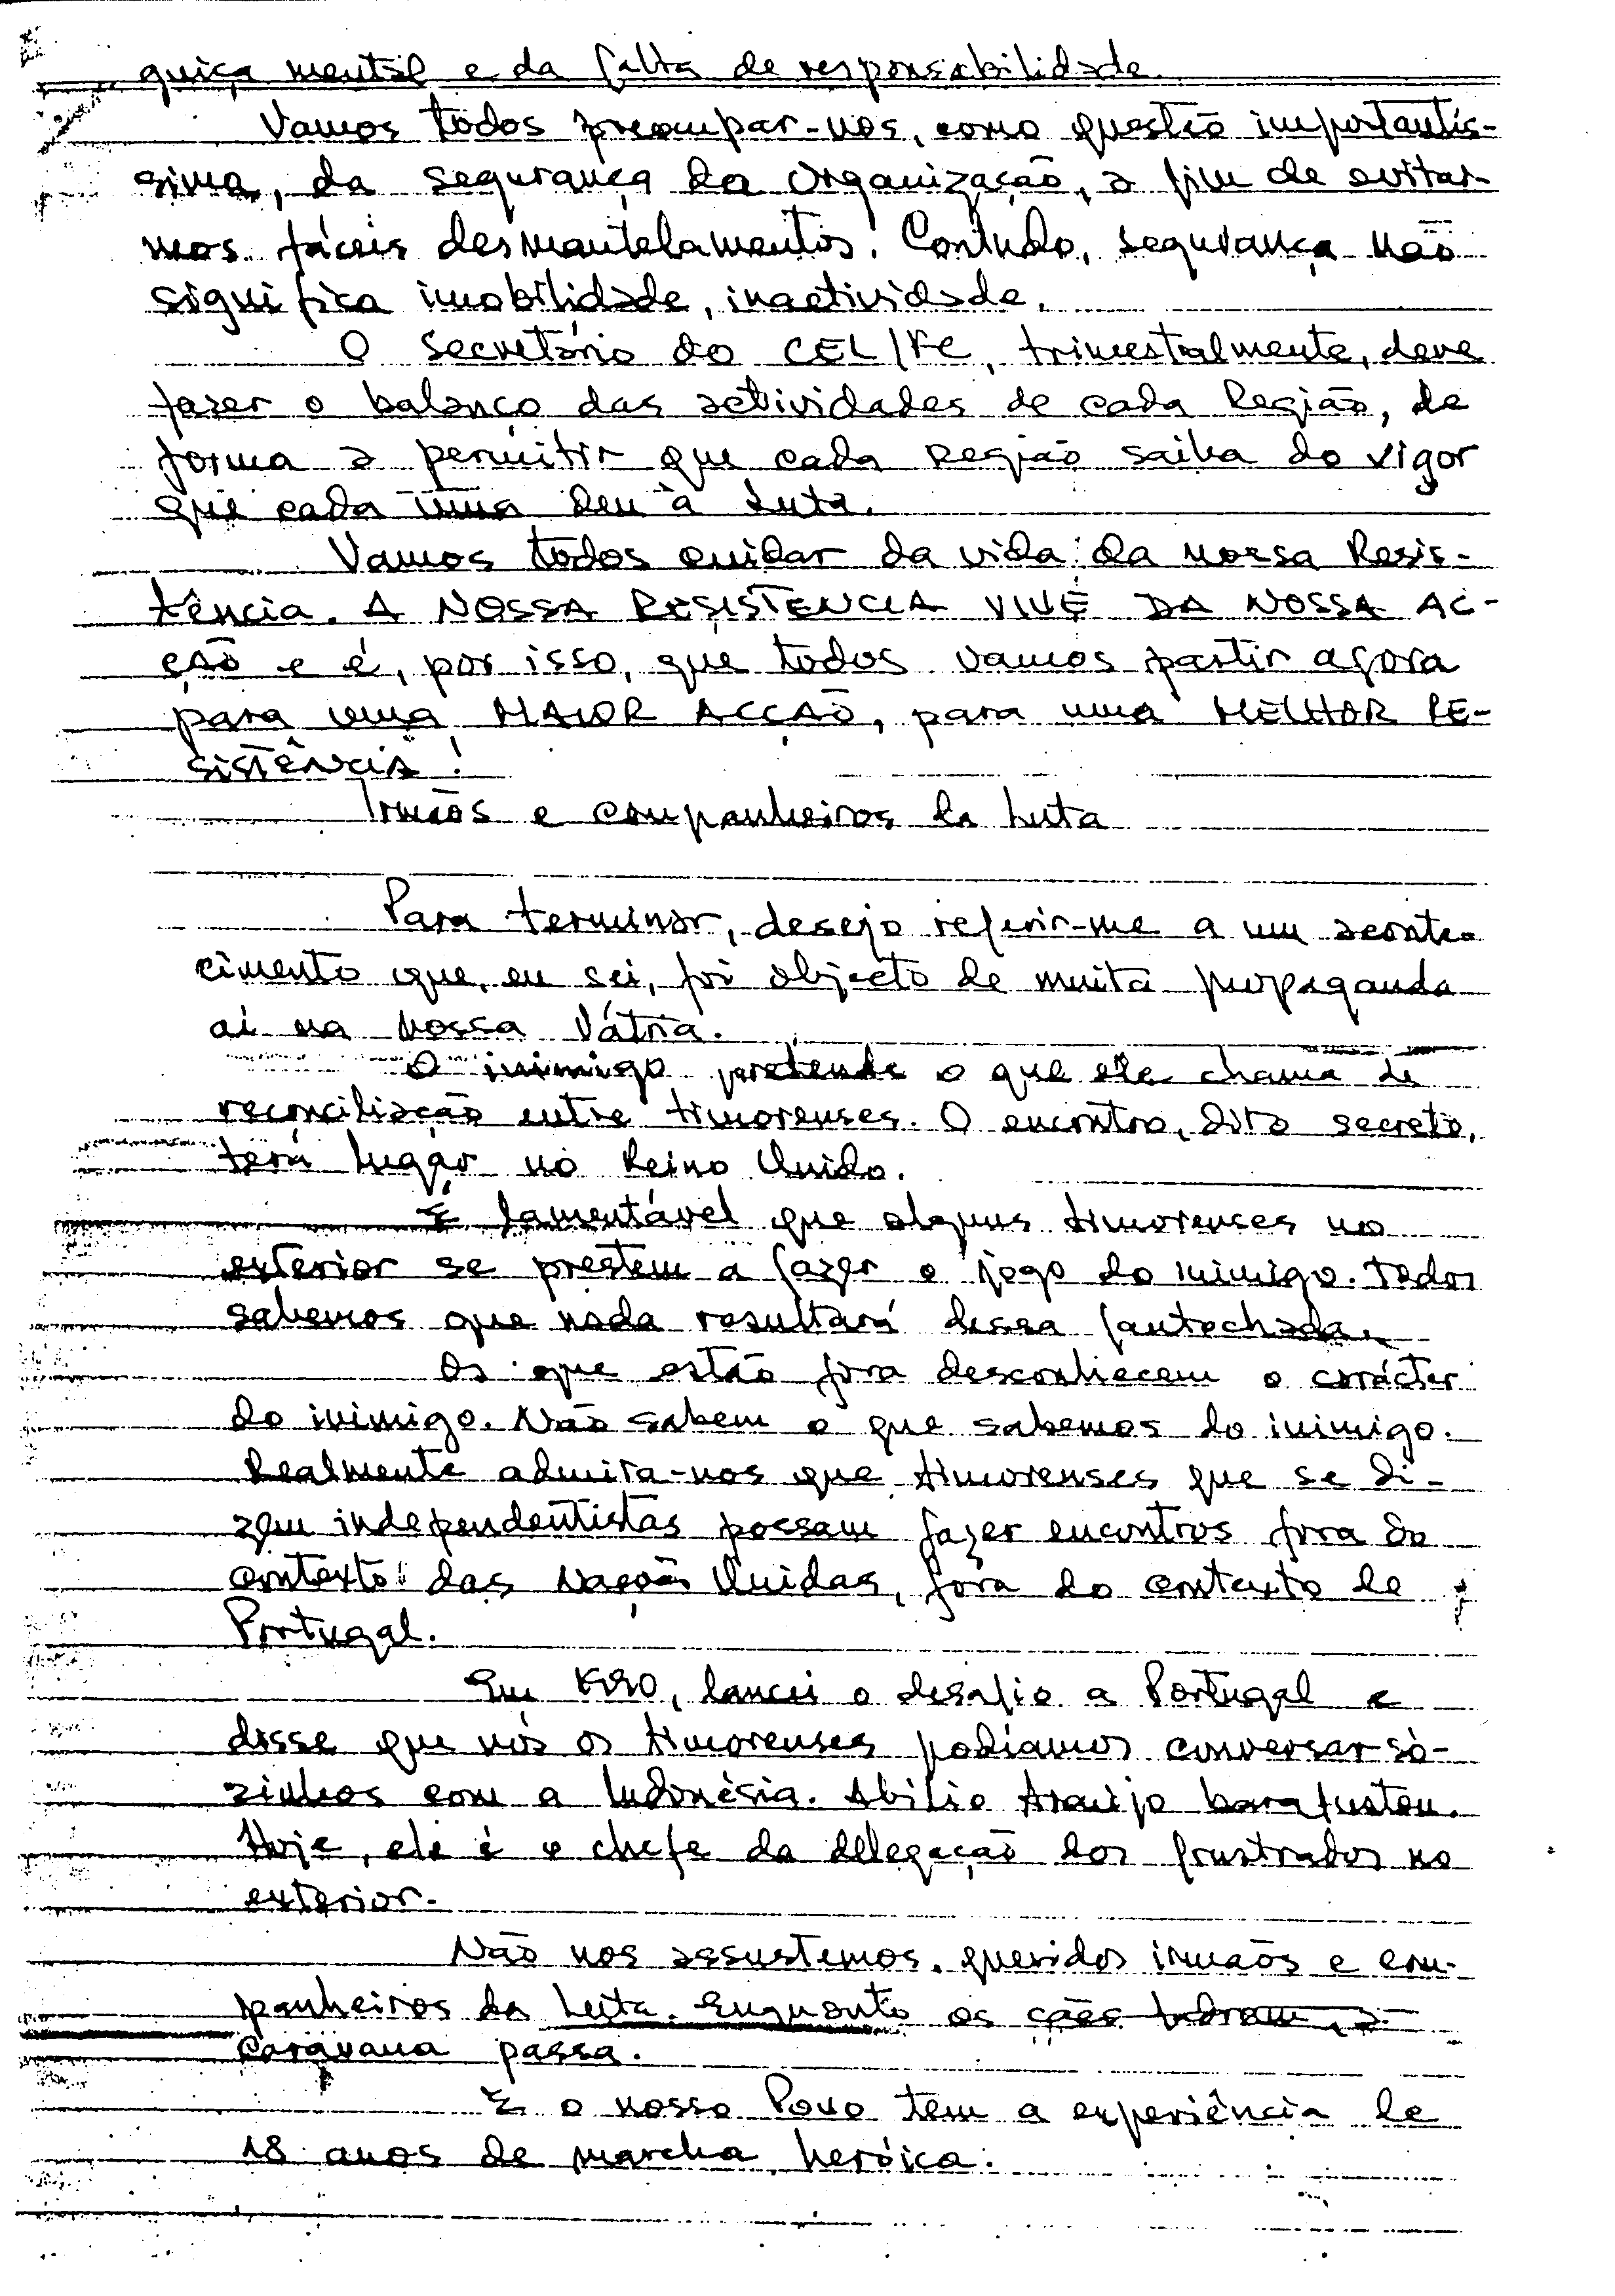 guiça mental e da falta de responsabilidade.
Vamos todos preocupar-nos, como questão importantís-
sima, da segurança da Organização, a fim de evitar-
mos fáceis desmantelamentos! Contudo, segurança não
significa imobilidade, inactividade.
O Secretário do CEL/FC, trimestralmente, deve
fazer o balanço das actividades de cada Região, de
forma a permitir que cada Região saiba do vigor
que cada uma deu à Luta.
Vamos todos cuidar da vida da nossa Resis-
tência. A NOSSA RESISTÊNCIA VIVE DA NOSSA AC-
ÇÃO e é, por isso, que todos vamos partir agora
para uma MAIOR ACÇÃO, para uma MELHOR RE-
SISTÊNCIA!
Irmãos e companheiros da Luta
Para terminar, desejo referir-me a um aconte-
cimento que, eu sei, foi objecto de muita propaganda
aí na nossa Pátria.
O inimigo pretende o que ele chama de
reconciliação entre timorenses. O encontro, dito secreto,
terá lugar no Reino Unido.
É lamentável que alguns timorenses no
exterior se prestem a fazer o jogo do inimigo. Todos
sabemos que nada resultará dessa fantochada.
Os que estão fora desconhecem o carácter
do inimigo. Não sabem o que sabemos do inimigo.
Realmente admira-nos que timorenses que se di-
zem independentistas possam fazer encontros fora do
contexto das Nações Unidas, fora do contexto de
Portugal.
Em 1990, lancei o desafio a Portugal e
disse que nós os timorenses podíamos conversar sò-
zinhos com a Indonésia. Abílio Araújo barafustou.
Hoje, ele é o chefe da delegação dos frustrados no
exterior.
Não nos assustemos, queridos irmãos e com-
panheiros da Luta. Enquanto os cães ladram, a
caravana passa.
E o nosso Povo tem a experiência de
18 anos de marcha heróica.